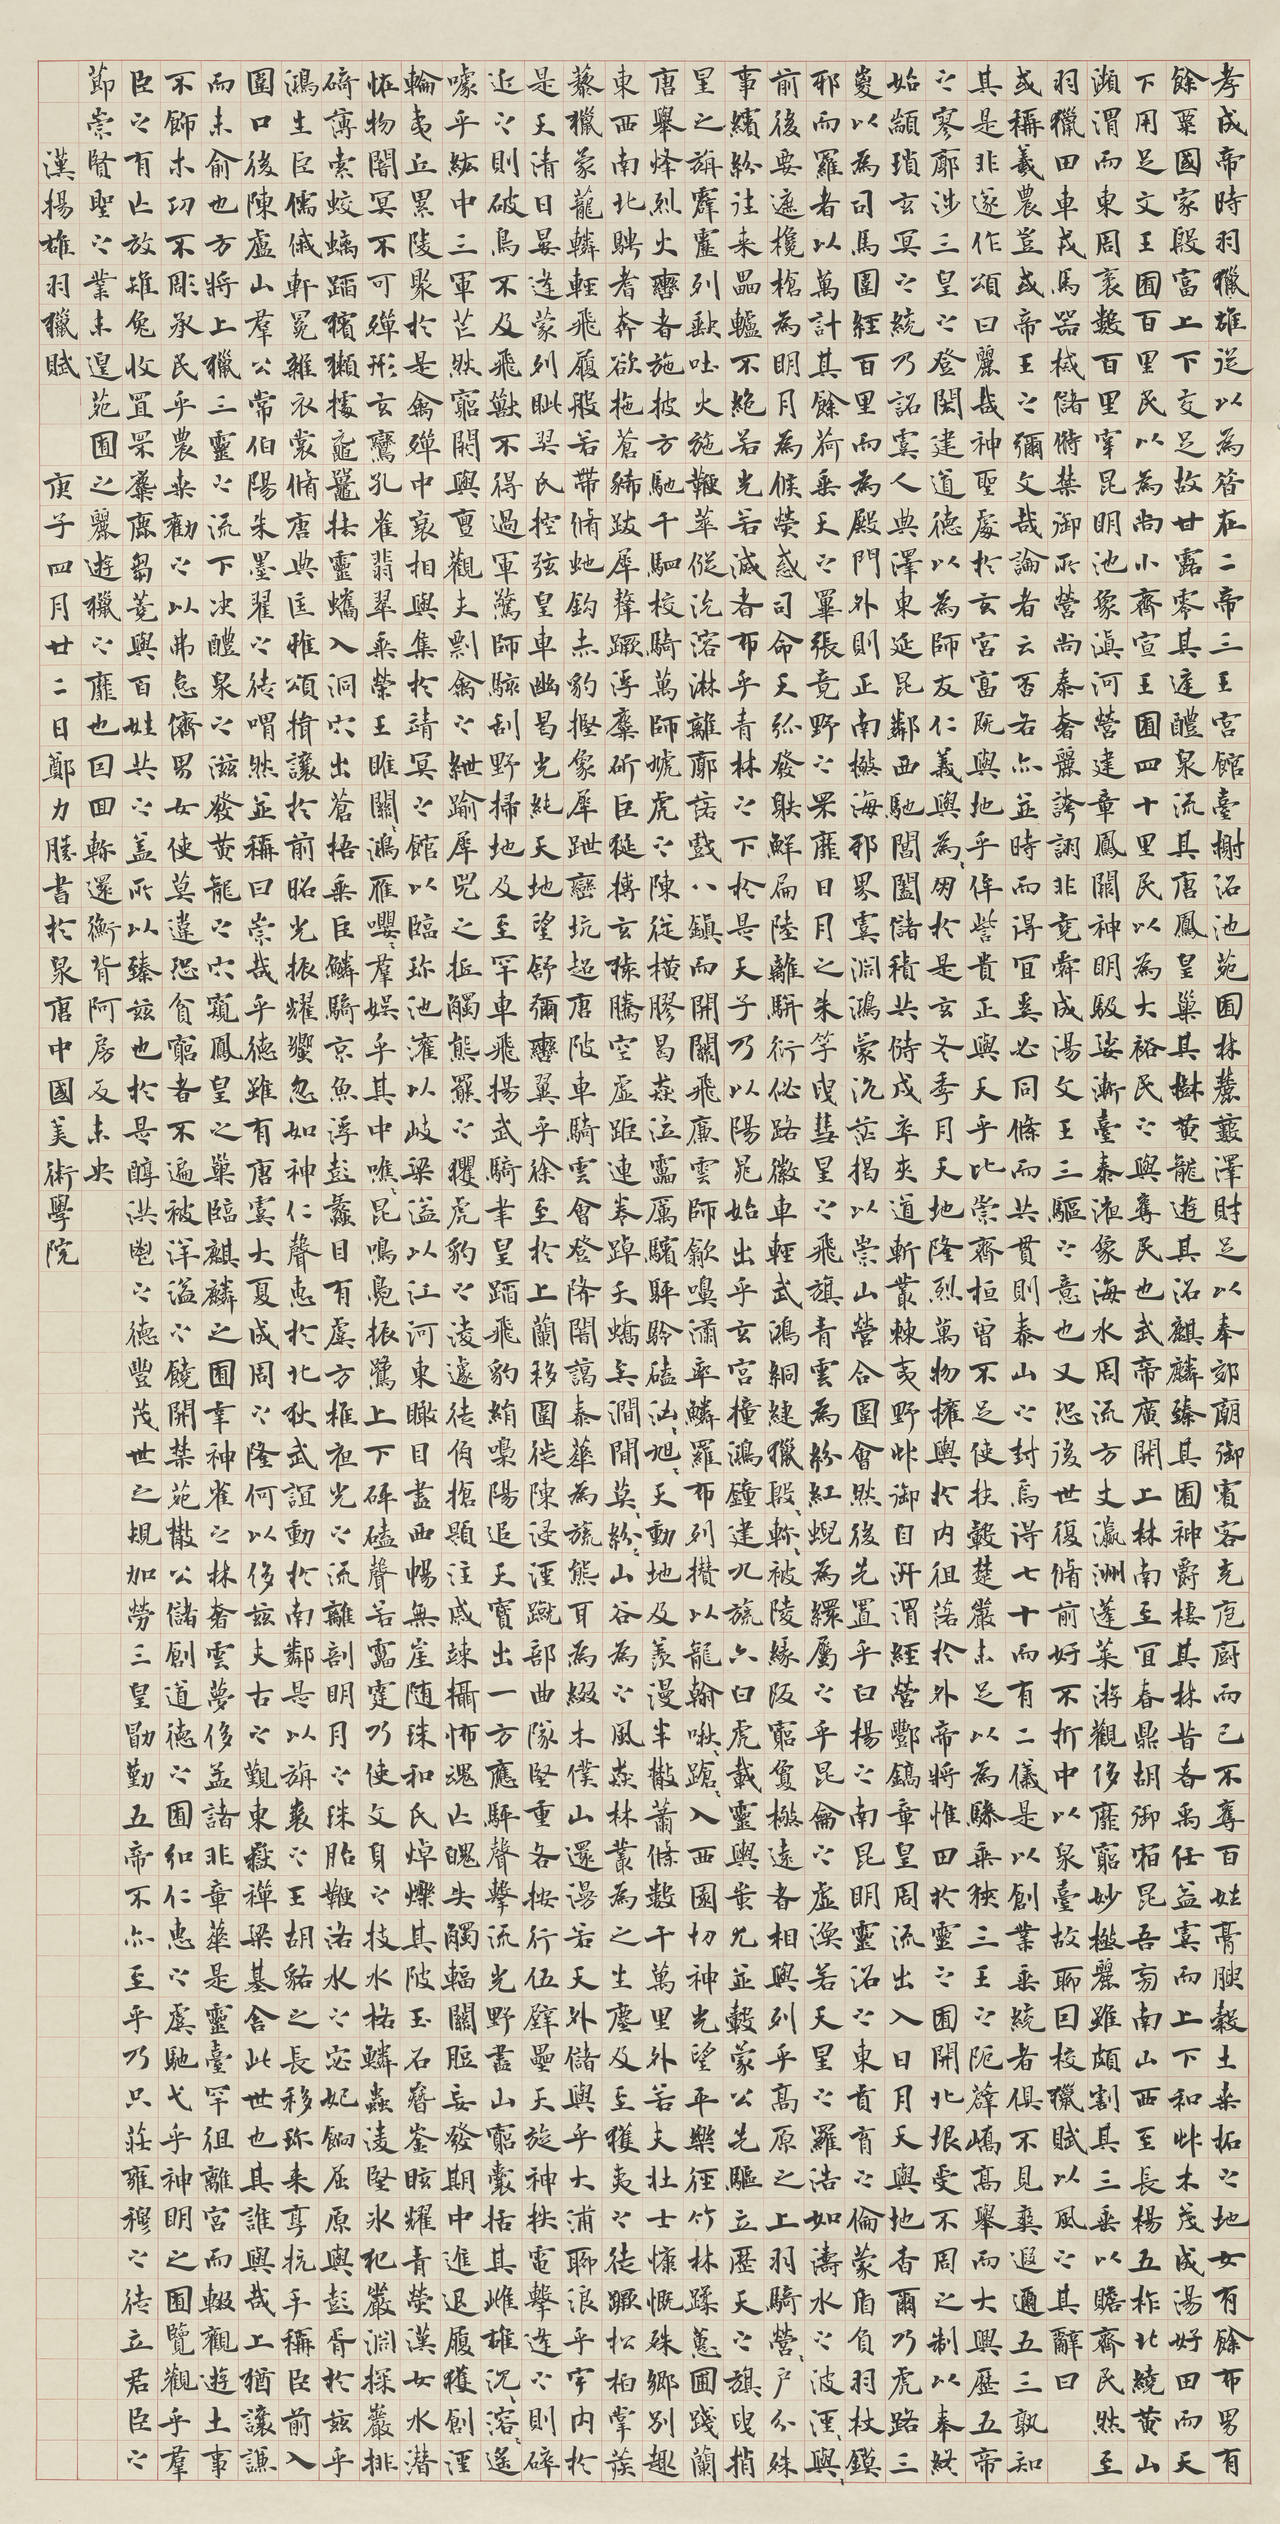 孝成帝時羽獵雄從以為昔在二帝三王宮館臺榭沼池苑囿林麓藪澤財足以奉郊廟御賓客充庖廚而已不奪百姓膏腴穀土桑柘之地女有餘布男有
餘粟國家殷富上下交足故甘露零其庭醴泉流其唐鳳皇巢其樹黃龍遊其沼麒麟臻其囿神爵棲其林昔者禹任益虞而上下和艸木茂成湯好田而天
下用足文王囿百里民以為尚小齊宣王囿四十里民以為大裕民之與奪民也武帝廣開上林南至宜春鼎胡御宿昆吾旁南山西至長楊五柞北繞黃山
瀕渭而東周袤數百里穿昆明池象滇河營建章鳳闕神明馺娑漸臺泰液象海水周流方丈瀛洲蓬萊游觀侈靡窮妙極麗雖頗割其三垂以贍齊民然至
羽獵田車戎馬器械儲偫禁御所營尚泰奢麗誇詡非堯舜成湯文王三驅之意也又恐後世復脩前好不折中以泉臺故聊因校獵賦以風之其辭曰
或稱羲農豈或帝王之彌文哉論者云否各亦並時而得宜奚必同條而共貫則泰山之封烏得七十而有二儀是以創業垂統者俱不見爽遐邇五三孰知
其是非遂作頌曰麗哉神聖處於玄宮富既與地乎侔訾貴正與天乎比崇齊桓曾不足使扶轂楚嚴未足以為驂乘狹三王之阨薜嶠高舉而大興歷五帝
之寥廓涉三皇之登閎建道德以為師友仁義與為朋於是玄冬季月天地隆烈萬物權輿於內徂落於外帝將惟田於靈之囿開北垠受不周之制以奉終
始顓瑣玄冥之統乃詔虞人典澤東延昆鄰西馳閶闔儲積共偫戍卒夾道斬叢棘夷野艸御自汧渭經營酆鎬章皇周流出入日月天與地杳爾乃虎路三
嵏以為司馬圍經百里而為殿門外則正南極海邪界虞淵鴻蒙沆茫揭以崇山營合圍會然後先置乎白楊之南昆明靈沼之東賁育之倫蒙盾負羽杖鏌
邪而羅者以萬計其餘荷垂天之罼張竟野之罘靡日月之朱竿曳彗星之飛旗青雲為紛紅蜺為繯屬之乎昆侖之虛渙若天星之羅浩如濤水之波淫〻與〻
前後要遮欃槍為明月為候熒惑司命天弧發射鮮扁陸離駢衍佖路徽車輕武鴻絧緁獵殷〻軫〻被陵緣阪窮夐極遠者相與列乎高原之上羽騎營〻戶分殊
事繽紛往來轤不絕若光若滅者布乎青林之下於是天子乃以陽晁始出乎玄宮撞鴻鐘建九旒六白虎載靈輿蚩尤並轂蒙公先驅立歷天之旗曳捎
星之旃霹靂列缺吐火施鞭萃傱沇溶淋離廓落戲八鎮而開關飛廉雲師歙嚊瀟率鱗羅布列攢以龍翰啾〻蹌〻入西園切神光望平樂徑竹林蹂蕙圃踐蘭
唐舉烽烈火轡者施披方馳千駟校騎萬師虓虎之陳從橫膠曷猋泣靁厲驞駍駖磕汹〻旭〻天動地及羨漫半散蕭條數千萬里外若夫壯士慷慨殊鄉別趣
東西南北騁耆奔欲拖蒼豨跋犀犛蹶浮麋斮巨狿搏玄猨騰空虛距連卷踔夭蟜澗間莫〻紛〻山谷為之風猋林叢為之生塵及至獲夷之徒蹶松柏掌蒺
藜獵蒙蘢轔輕飛履般若帶脩虵鉤赤豹摼象犀跇巒坑超唐陂車騎雲會登降闇藹泰華為旒熊耳為綴木僕山還漫若天外儲與乎大浦聊浪乎宇內於
是天清日晏逢蒙列眦羿氏控弦皇車幽曷光純天地望舒彌轡翼乎徐至於上蘭移圍徙陳浸淫蹴部曲隊堅重各按行伍壁壘天旋神抶電擊逢之則碎
近之則破鳥不及飛獸不得過軍驚師駭刮野掃地及至罕車飛揚武騎聿皇蹈飛豹絹嘄陽追天寶出一方應駍聲擊流光野盡山窮囊括其雌雄沉〻溶〻遙
噱乎紘中三軍芒然窮閼與亶觀夫剽禽之紲踰犀兕之抵觸熊羆之玃虎豹之凌遽徒角搶題注戚竦攝怖魂亡魄失觸輻關脰妄發期中進退履獲創淫
輪夷丘累陵聚於是禽殫中衰相與集於靖冥之館以臨珍池灌以岐梁溢以江河東瞰目盡西暢無崖隨珠和氏焯爍其陂玉石嶜崟眩耀青熒漢女水潛
怪物闇冥不可殫形玄鸞孔雀翡翠垂榮王雎關〻鴻雁嚶〻羣娛乎其中噍〻昆鳴鳧振鷺上下砰磕聲若靁霆乃使文身之技水格鱗蟲凌堅冰犯嚴淵探巖排
碕薄索蛟螭蹈獱獺據黿鼉抾靈蠵入洞穴出蒼梧乘巨鱗騎京魚浮彭蠡目有虞方椎夜光之流離剖明月之珠胎鞭洛水之宓妃餉屈原與彭胥於茲乎
鴻生巨儒俄軒冕雜衣裳脩唐典匡雅頌揖讓於前昭光振耀蠁忽如神仁聲惠於北狄武誼動於南鄰是以旃裘之王胡貉之長移珍來享抗手稱臣前入
圍口後陳盧山羣公常伯陽朱墨翟之徒喟然並稱曰崇哉乎德雖有唐虞大夏成周之隆何以侈茲夫古之覲東嶽禪梁基舍此世也其誰與哉上猶讓謙
而未俞也方將上獵三靈之流下決醴泉之滋發黃龍之穴窺鳳皇之巢臨麒麟之囿幸神雀之林奢雲夢侈孟諸非章華是靈臺罕徂離宮而輟觀遊土事
不飾木功不彫承民乎農桑勸之以弗怠儕男女使莫違恐貧窮者不遍被洋溢之饒開禁苑散公儲創道德之囿弘仁惠之虞馳弋乎神明之囿覽觀乎羣
臣之有亡放雉兔收罝罘麋鹿芻蕘與百姓共之蓋所以臻茲也於是醇洪鬯之德豐茂世之規加勞三皇勖勤五帝不亦至乎乃只莊雍穆之徒立君臣之
節崇賢聖之業未遑苑囿之麗遊獵之靡也因回軫還衡背阿房反未央
漢揚雄羽獵賦 庚子四月廿二日鄭力勝書於泉唐中國美術學院